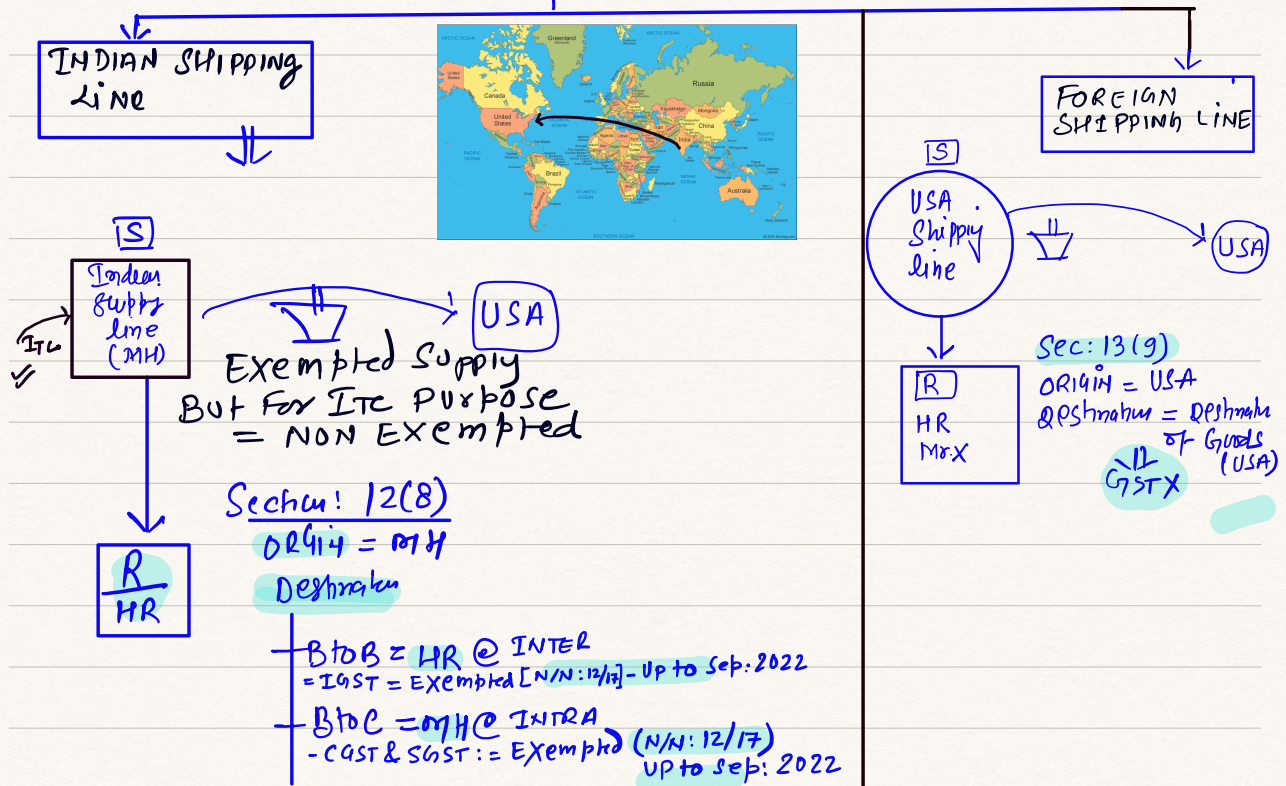 INDIAN SHIPPING
LiNe
FOREIGN
SHIPPING LINE
ARCTIC OCEAN
ARCTIC OCEAN
Greenland
Russia
Canada
United States
Kazakhstan
Mongolia
China
India
Iran
Algeria
Libya
Brazil
Australia
PACIFIC OCEAN
ATLANTIC OCEAN
INDIAN OCEAN
PACIFIC OCEAN
SOUTHERN OCEAN
S
Indian
Supply
line
(MH)
ITC
USA
Exempted Supply
But For ITC Purpose
= NON Exempted
R
HR
Section: 12(8)
ORGin = MH
Destination
BtoB = HR @ INTER
= IGST = Exempted [N/N: 12/17] - Up to Sep: 2022
BtoC = MH @ INTRA
- CGST & SGST := Exempted (N/N: 12/17)
UP to Sep: 2022
S
USA
Shippiy
line
USA
R
HR
Mr.X
Sec: 13(9)
ORIGIN = USA
Destination = Destinatn
of Goods
(USA)
GST X